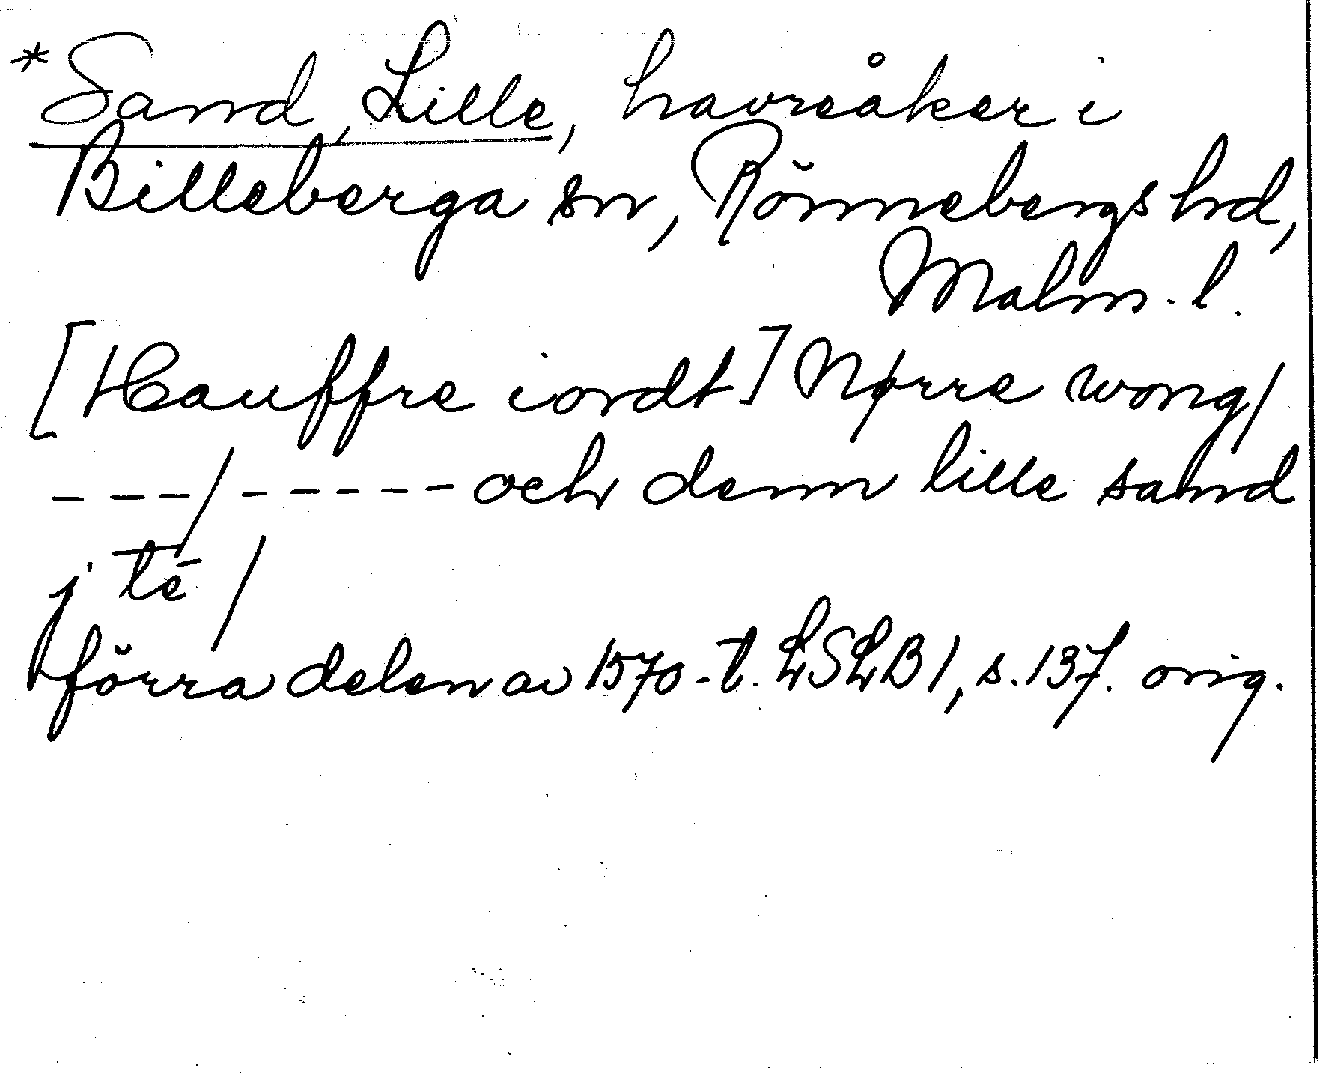 *Sand, Lille, havreåker i
Billeberga sn, Rönnebergs hd,
Malm. l.
[Hauffre iordt] Nørre wong/
---/----- och denn lille sand
j té /
förra delen av 1570-t. LSLB1, s. 137. orig.